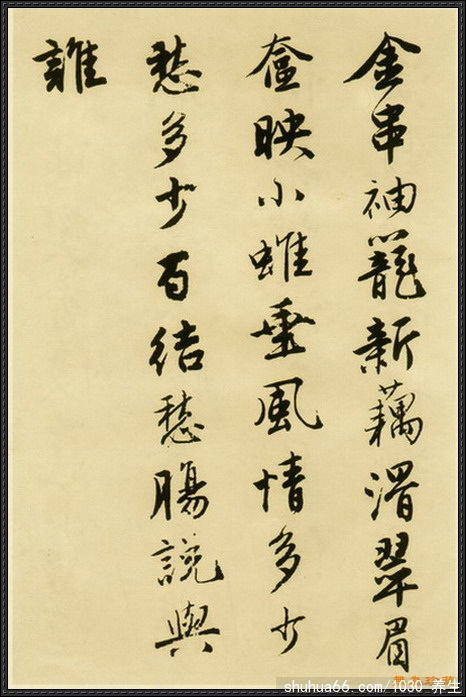 金串袖籠新藕滑翠眉
奩映小蛾垂風情多少
愁多少百結愁腸說與
誰
shuhua66.com/1030-养生